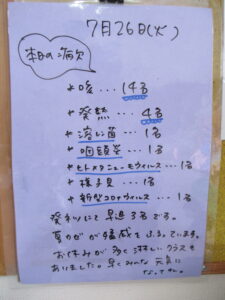 7月26日(火)
本日の病欠
咳…14名
発熱…4名
溶レン菌…1名
咽頭炎…1名
ヒトメタニューモウイルス…1名
様子見…1名
新型コロナウイルス…1名
発熱にて早退3名です。
夏カゼが猛威をふるっています。
お休みが多く淋しいクラスも
ありました。早くみんな元気に
なってね。